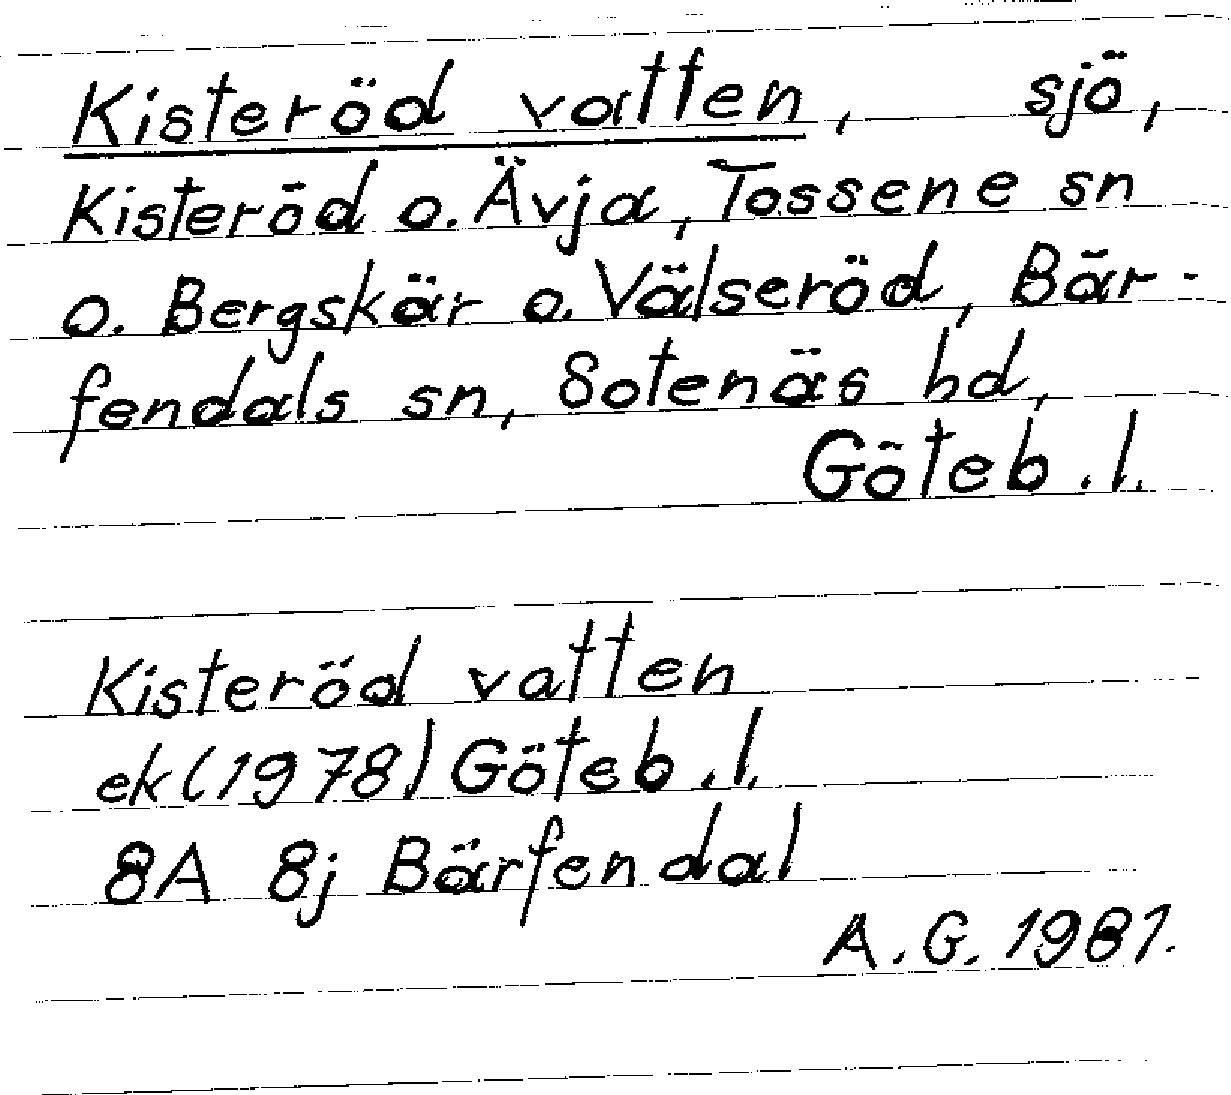 Kisteröd vatten, sjö,
Kisteröd o. Ävja, Tossene sn
o. Bergskär o. Välseröd, Bär-
fendals sn, Sotenäs hd,
Göteb. l.
Kisteröd vatten
ek (1978) Göteb. l.
8A 8j Bärfendal
A. G. 1981.